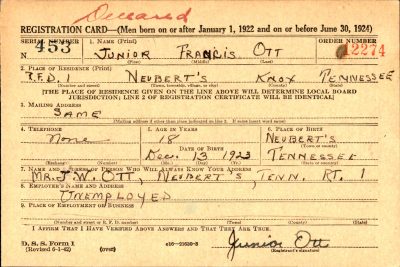 Deceased
REGISTRATION CARD—(Men born on or after January 1, 1922 and on or before June 30, 1924)
SERIAL NUMBER 1. Name (Print) ORDER NUMBER
N 453 Junior Francis Ott 12274
(First) (Middle) (Last)
2. Place of Residence (Print)
R.F.D. 1 Neubert's Knox Tennessee
(Number and street) (Town, township, village, or city) (County) (State)
[THE PLACE OF RESIDENCE GIVEN ON THE LINE ABOVE WILL DETERMINE LOCAL BOARD
JURISDICTION; LINE 2 OF REGISTRATION CERTIFICATE WILL BE IDENTICAL]
3. Mailing Address
Same
(Mailing address if other than place indicated on line 2. If same insert word same)
4. Telephone 5. Age in Years 6. Place of Birth
None 18 Neubert's
(Town or county)
Date of Birth
Dec. 13 1923 Tennessee
(Exchange) (Number) (Mo.) (Day) (Yr.) (State or country)
7. Name and Address of Person Who Will Always Know Your Address
Mr. J. W. Ott, Neubert's, Tenn. Rt. 1
8. Employer's Name and Address
Unemployed
9. Place of Employment or Business
(Number and street or R. F. D. number) (Town) (County) (State)
I Affirm That I Have Verified Above Answers and That They Are True.
D. S. S. Form 1
(Revised 6-1-42) (over) Junior Ott
(Registrant's signature)